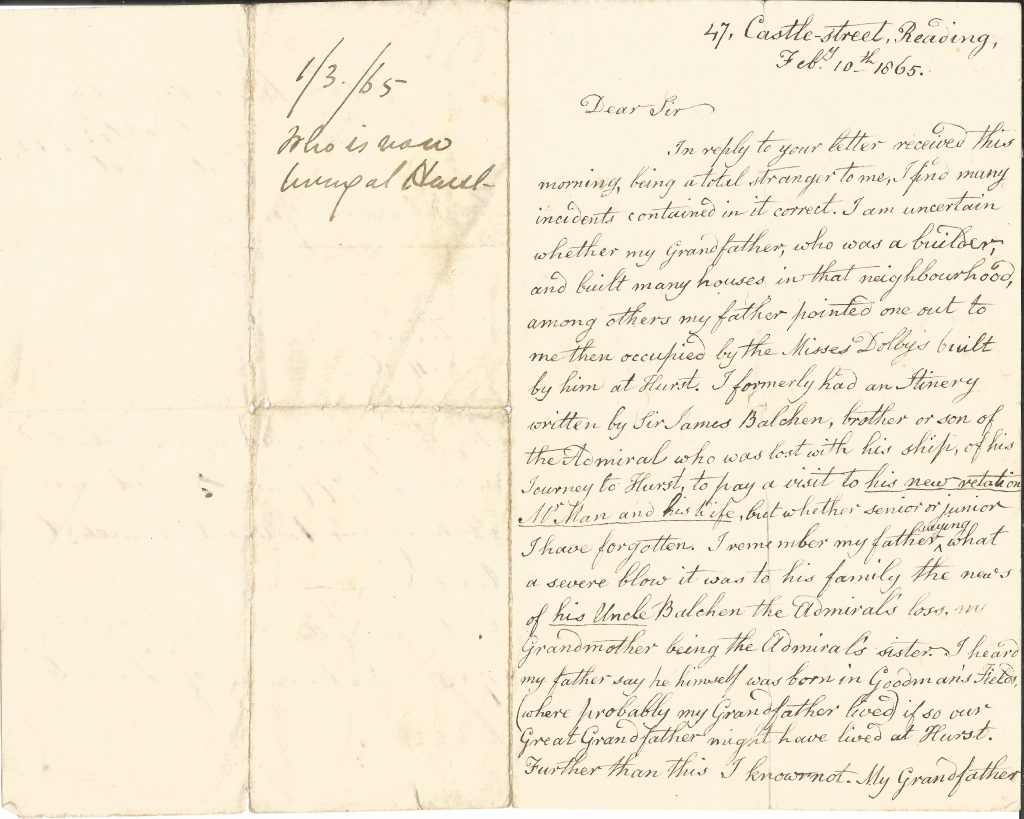 1/3./65
Who is now
living at Hurst
47, Castle-street, Reading,
Feby. 10th 1865.
Dear Sir
In reply to your letter received this
morning, being a total stranger to me, I find many
incidents contained in it correct. I am uncertain
whether my Grandfather, who was a builder,
and built many houses in that neighbourhood,
among others my father pointed one out to
me then occupied by the Misses Dolby's built
by him at Hurst. I formerly had an Itinery
written by Sir James Balchen, brother or son of
the Admiral who was lost with his ship, of his
Journey to Hurst, to pay a visit to his new relation
Mr Man and his Wife, but whether senior or junior
I have forgotten. I remember my father saying what
a severe blow it was to his family the news
of his Uncle Balchen the Admiral's loss, my
Grandmother being the Admiral's sister. I heard
my father say he himself was born in Goodman's Fields,
(where probably my Grandfather lived) if so our
Great Grandfather might have lived at Hurst.
Further than this I know not. My Grandfather